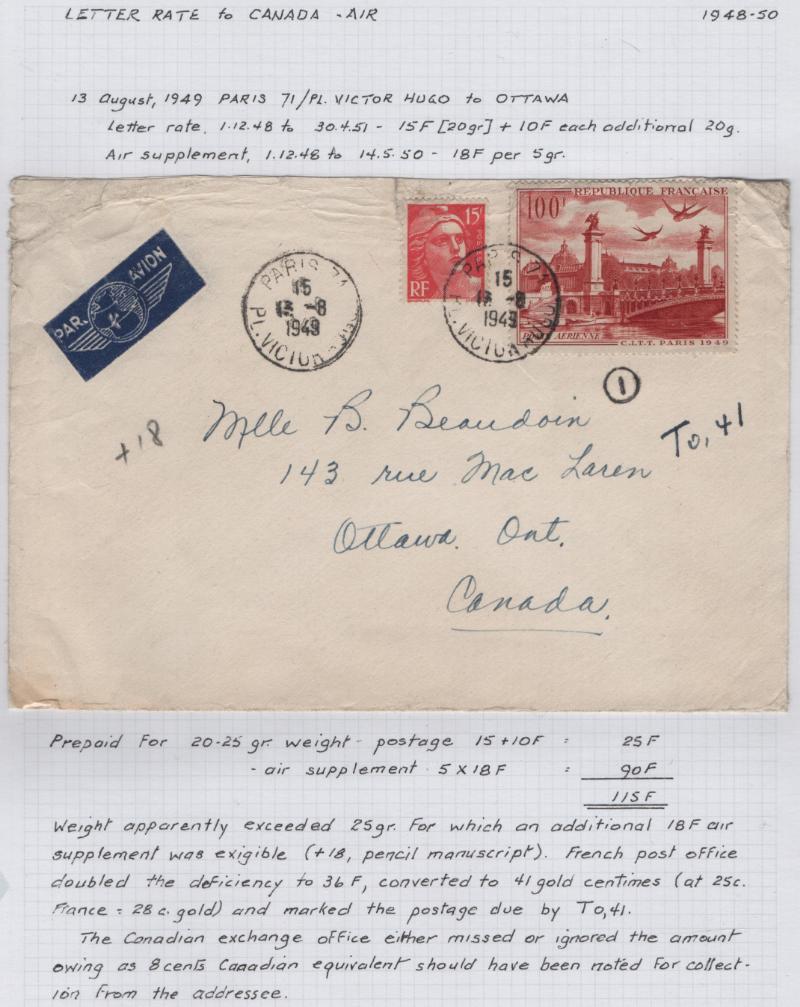 LETTER RATE to CANADA - AIR 1948-50
13 August, 1949 PARIS 71/PL. VICTOR HUGO to OTTAWA
Letter rate, 1.12.48 to 30.4.51 - 15F [20gr] + 10F each additional 20g.
Air supplement, 1.12.48 to 14.5.50 - 18F per 5gr.
PAR AVION
PARIS 71
15
13 -8
1949
PL. VICTOR HUGO
15F
RF
REPUBLIQUE FRANÇAISE
100F
POSTE AERIENNE
C.I.T.T. PARIS 1949
PARIS 71
15
13 -8
1949
PL. VICTOR HUGO
1
+18
To,41
Mlle B. Beaudoin
143 rue Mac Laren
Ottawa. Ont.
Canada.
Prepaid For 20-25 gr. weight - postage 15+10F = 25F
- air supplement 5 X 18F = 90F
115F
Weight apparently exceeded 25gr. For which an additional 18F air
supplement was exigible (+18, pencil manuscript). French post office
doubled the deficiency to 36F, converted to 41 gold centimes (at 25c.
France = 28c. gold) and marked the postage due by To,41.
The Canadian exchange office either missed or ignored the amount
owing as 8cents Canadian equivalent should have been noted for collect-
ion from the addressee.